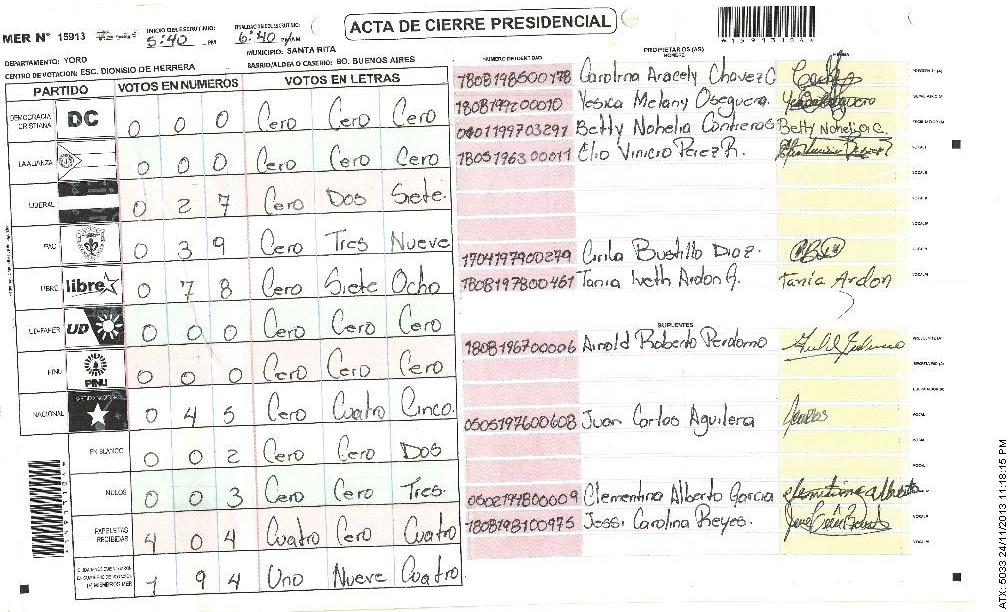 ACTA DE CIERRE PRESIDENCIAL
MER N° 15913
INICIO DEL ESCRUTINIO: 5:40 PM
FINALIZACION DEL ESCRUTINIO: 6:40 PM
DEPARTAMENTO: YORO
MUNICIPIO: SANTA RITA
CENTRO DE VOTACION: ESC. DIONISIO DE HERRERA
BARRIO/ALDEA O CASERIO: BO. BUENOS AIRES
PARTIDO VOTOS EN NUMEROS VOTOS EN LETRAS
DEMOCRACIA CRISTIANA DC 0 0 0 Cero Cero Cero
LA ALIANZA 0 0 0 Cero Cero Cero
LIBERAL 0 2 7 Cero Dos Siete.
PAC 0 3 9 Cero Tres Nueve
LIBRE libre 0 7 8 Cero Siete Ocho
UD-FAPER UD 0 0 0 Cero Cero Cero
PINU PINU 0 0 0 Cero Cero Cero
NACIONAL 0 4 5 Cero Cuatro Cinco.
EN BLANCO 0 0 2 Cero Cero Dos
NULOS 0 0 3 Cero Cero Tres.
PAPELETAS RECIBIDAS 4 0 4 Cuatro Cero Cuatro
1 9 4 Uno Nueve Cuatro
NUMERO DE IDENTIDAD PROPIETARIOS (AS) NOMBRE FIRMA
1808198500178 Carolina Aracely Chavez C
1808199200010 Yesica Melany Oseguera.
0401199703291 Betty Nohelia Contreras Betty Nohelia C.
1805196300011 Elio Vinicio Perez R.
1704197900279 Cirila Bustillo Diaz.
1808197800461 Tania Iveth Ardon A. Tania Ardon
SUPLENTES
1808196700006 Arnold Roberto Perdomo
0505197600608 Juan Carlos Aguilera
Clementina Alberto Garcia
1808198100975 Jessi Carolina Reyes.
ATX: 5033 24/11/2013 11:18:15 PM